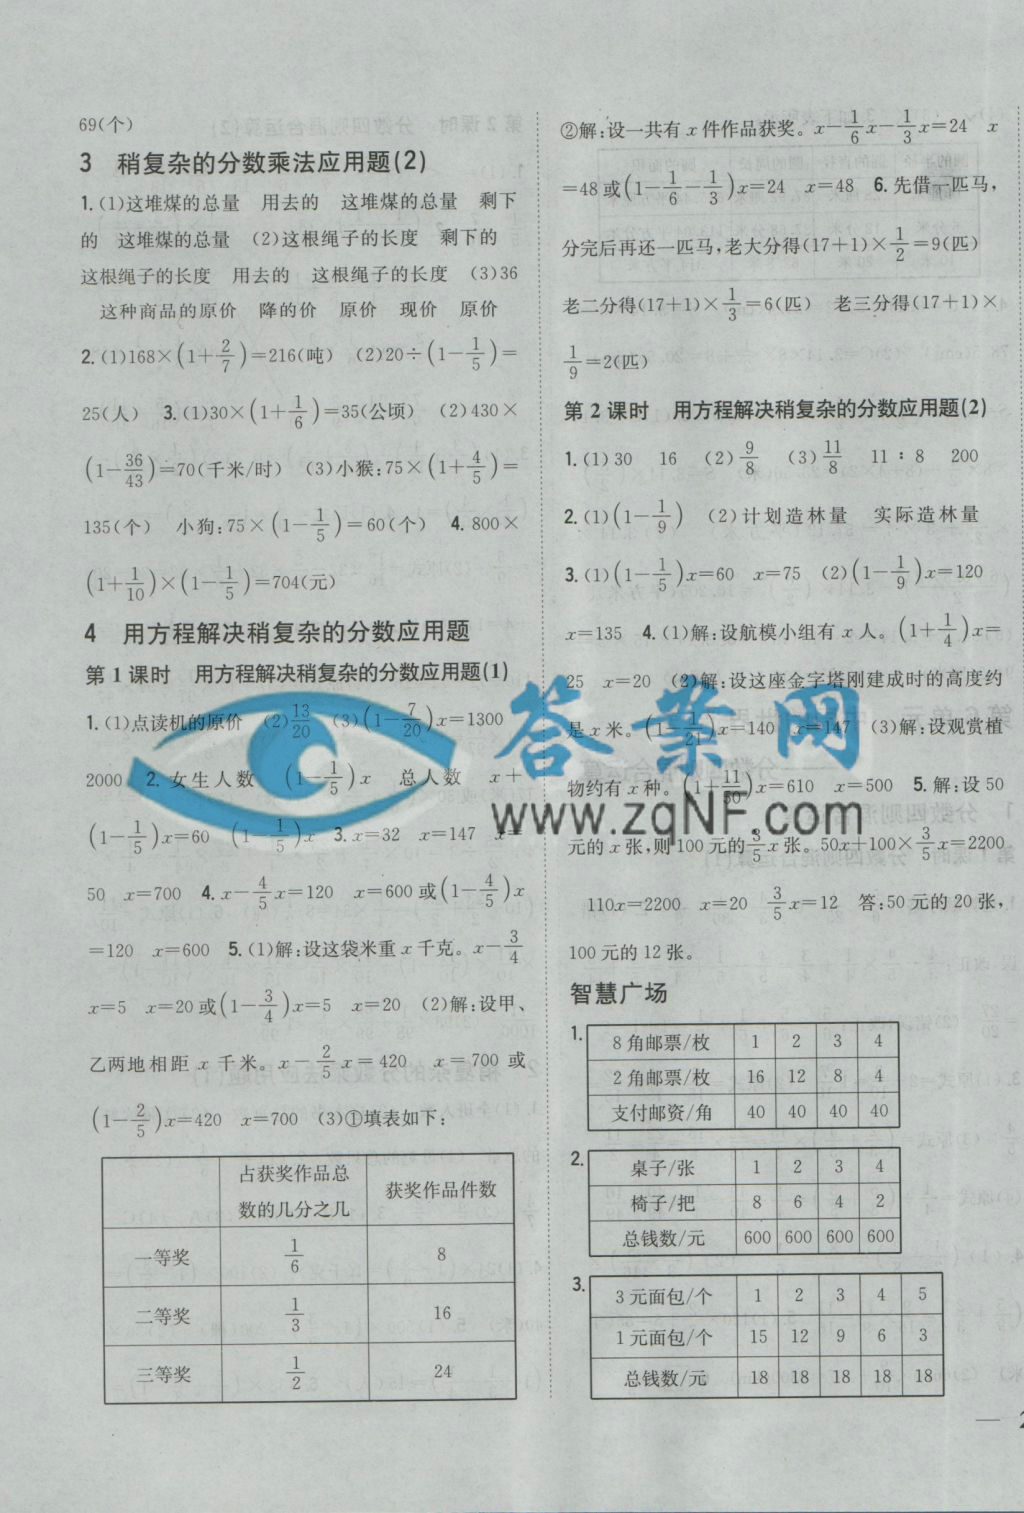 69(个)
3 稍复杂的分数乘法应用题(2)
1.(1)这堆煤的总量 用去的 这堆煤的总量 剩下
的 这堆煤的总量 (2)这根绳子的长度 剩下的
这根绳子的长度 用去的 这根绳子的长度 (3)36
这种商品的原价 降的价 原价 现价 原价
2.(1)168×(1+2/7)=216(吨) (2)20÷(1-1/5)=
25(人) 3.(1)30×(1+1/6)=35(公顷) (2)430×
(1-36/43)=70(千米/时) (3)小猴:75×(1+4/5)=
135(个) 小狗:75×(1-1/5)=60(个) 4.800×
(1+1/10)×(1-1/5)=704(元)
4 用方程解决稍复杂的分数应用题
第1课时 用方程解决稍复杂的分数应用题(1)
1.(1)点读机的原价 (2)13/20 (3)(1-7/20)x=1300
2000 2.女生人数 (1-1/5)x 总人数 x+
(1-1/5)x=60 (1-1/5)x 3.x=32 x=147 x=
50 x=700 4.x-4/5x=120 x=600或(1-4/5)x
=120 x=600 5.(1)解:设这袋米重x千克。x-3/4
x=5 x=20或(1-3/4)x=5 x=20 (2)解:设甲、
乙两地相距x千米。x-2/5x=420 x=700或
(1-2/5)x=420 x=700 (3)①填表如下:
占获奖作品总数的几分之几 获奖作品件数
一等奖 1/6 8
二等奖 1/3 16
三等奖 1/2 24
②解:设一共有x件作品获奖。x-1/6x-1/3x=24 x
=48或(1-1/6-1/3)x=24 x=48 6.先借一匹马,
分完后再还一匹马,老大分得(17+1)×1/2=9(匹)
老二分得(17+1)×1/3=6(匹) 老三分得(17+1)×
1/9=2(匹)
第2课时 用方程解决稍复杂的分数应用题(2)
1.(1)30 16 (2)9/8 (3)11/8 11:8 200
2.(1)(1-1/9) (2)计划造林量 实际造林量
3.(1)(1-1/5)x=60 x=75 (2)(1-1/9)x=120
x=135 4.(1)解:设航模小组有x人。(1+1/4)x=
25 x=20 (2)解:设这座金字塔刚建成时的高度约
是x米。(1-1/21)x=140 x=147 (3)解:设观赏植
物约有x种。(1+11/50)x=610 x=500 5.解:设50
元的x张,则100元的3/5x张。50x+100×3/5x=2200
110x=2200 x=20 3/5x=12 答:50元的20张,
100元的12张。
智慧广场
1.
8角邮票/枚 1 2 3 4
2角邮票/枚 16 12 8 4
支付邮资/角 40 40 40 40
2.
桌子/张 1 2 3 4
椅子/把 8 6 4 2
总钱数/元 600 600 600 600
3.
3元面包/个 1 2 3 4 5
1元面包/个 15 12 9 6 3
总钱数/元 18 18 18 18 18
答案网
www.zqNF.com